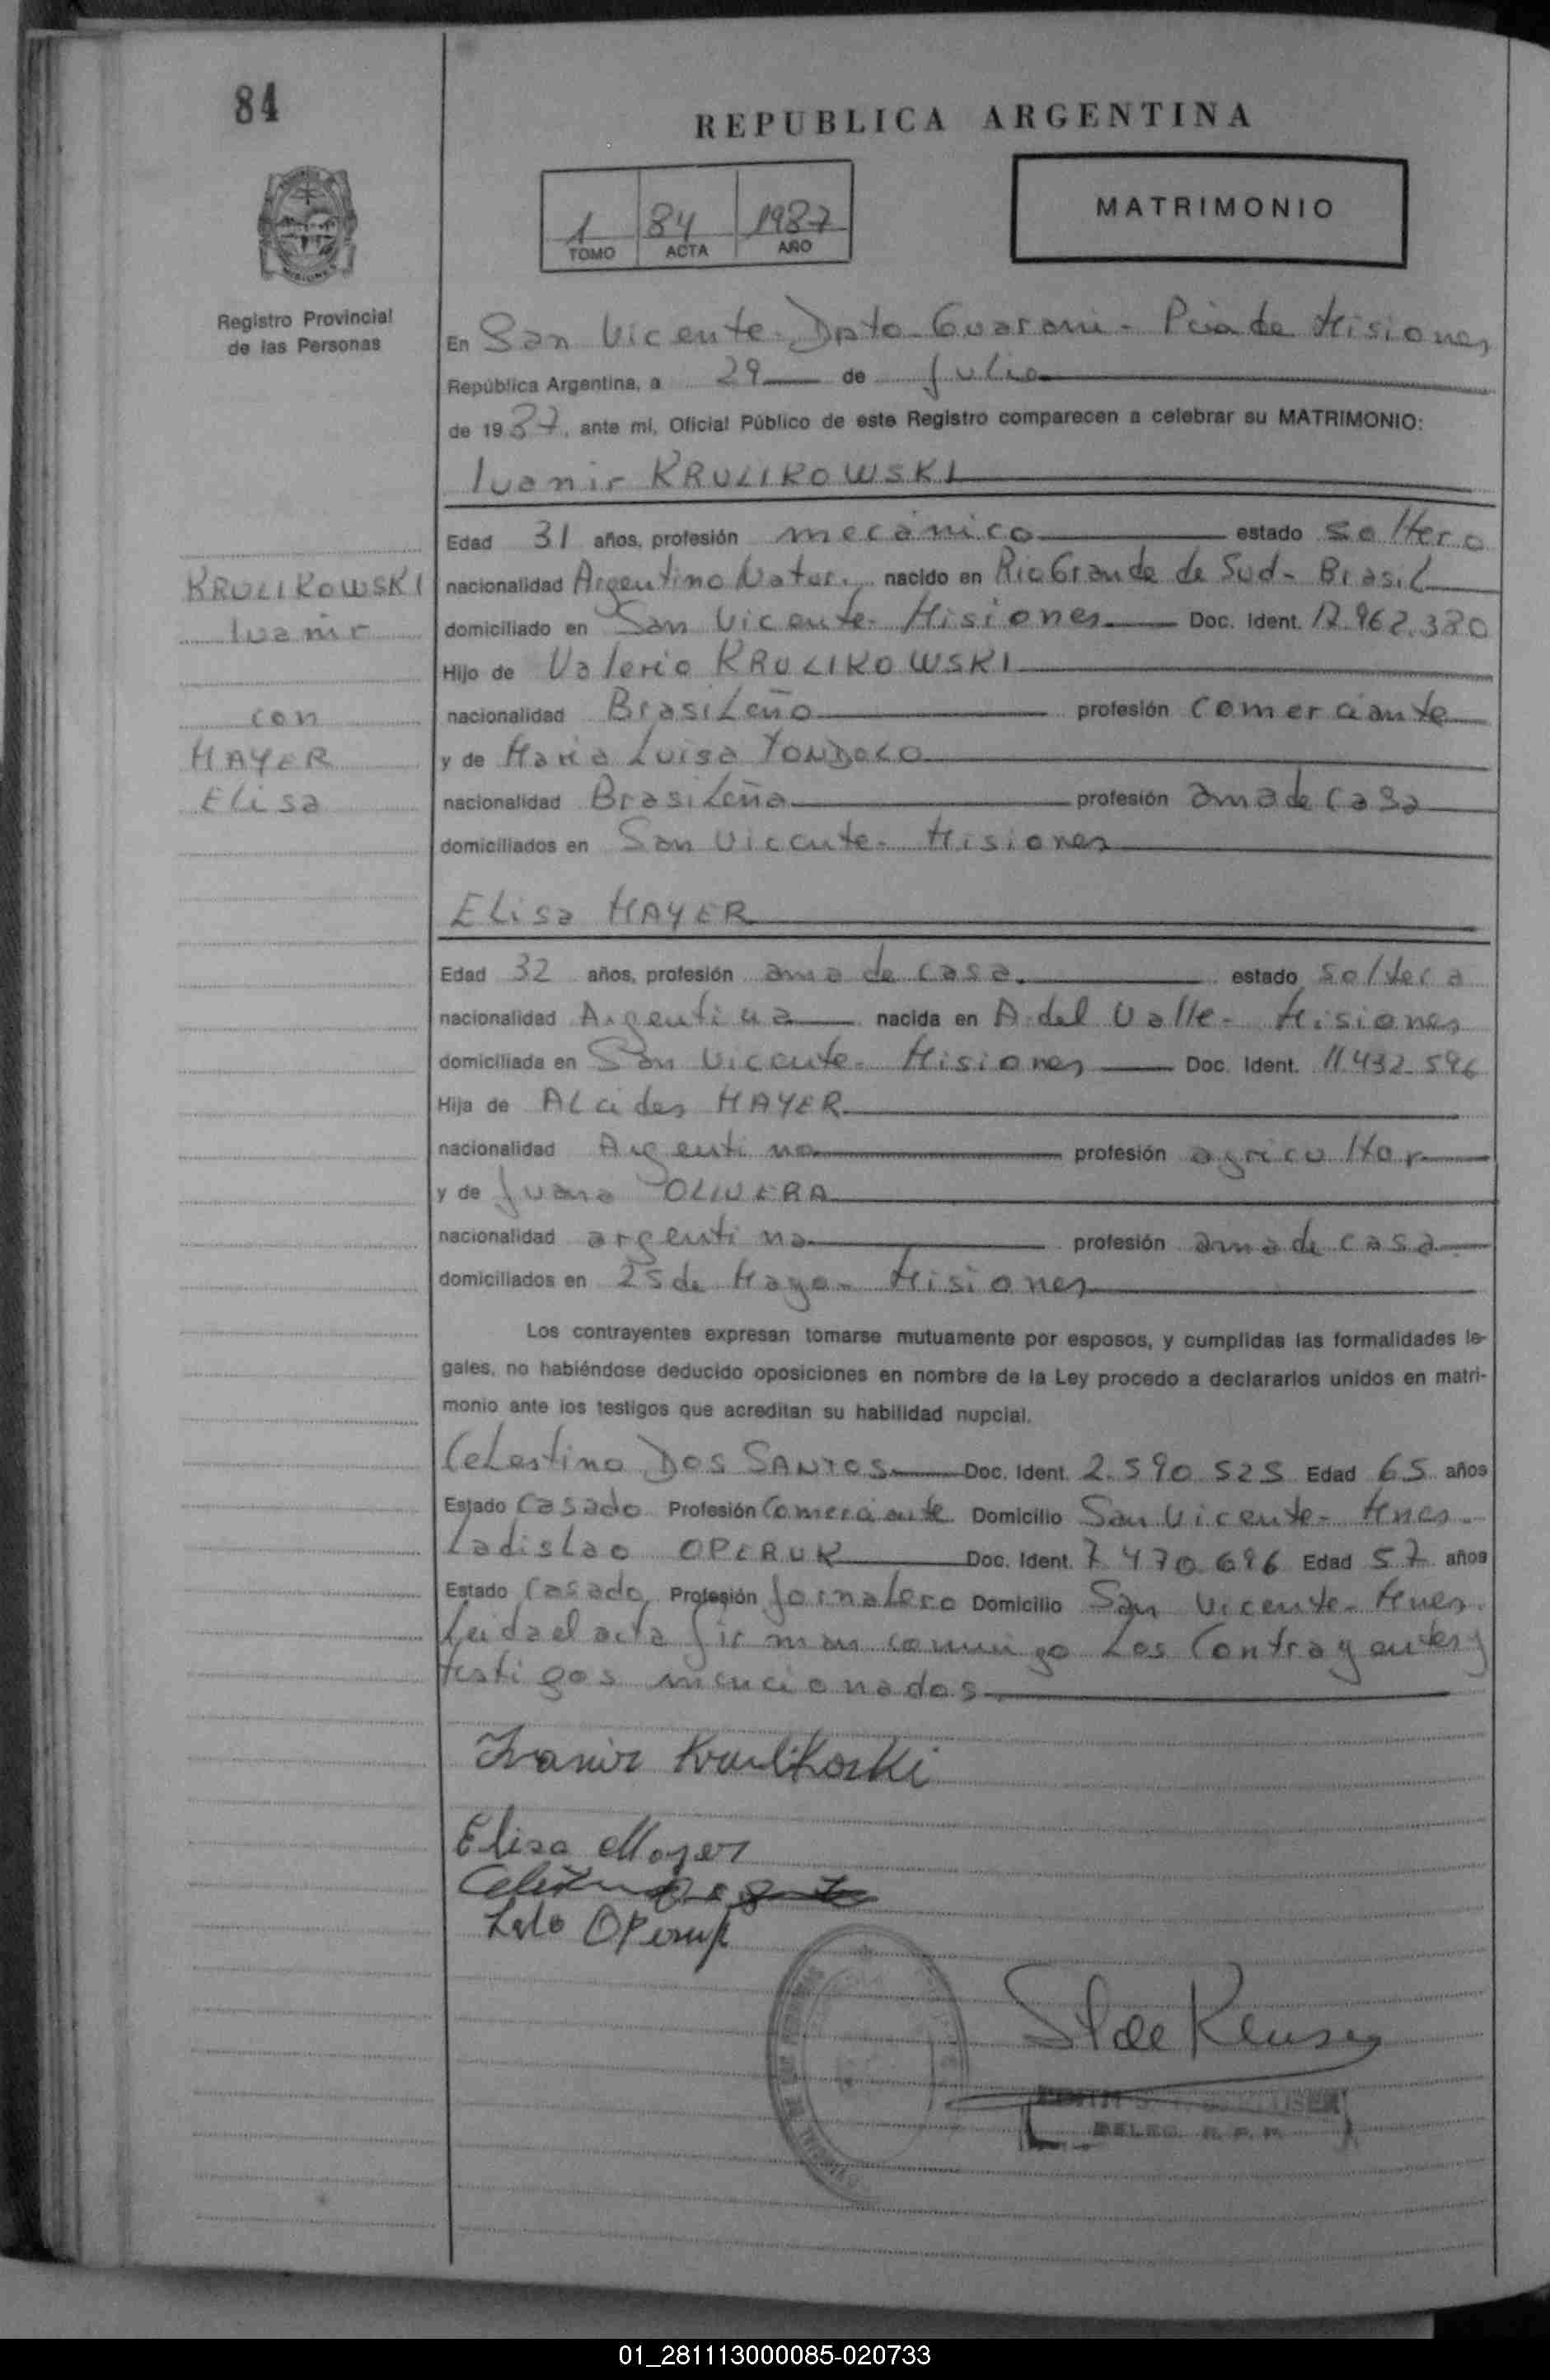 84
REPUBLICA ARGENTINA
1 84 1987
TOMO ACTA AÑO
MATRIMONIO
Registro Provincial
de las Personas
En San Vicente - Dpto - Guaraní - Pcia de Misiones
República Argentina, a 29 de Julio
de 1987, ante mi, Oficial Público de este Registro comparecen a celebrar su MATRIMONIO:
Ivanir KRULIKOWSKI
Edad 31 años, profesión mecánico estado soltero
KRULIKOWSKI
Ivanir
con
MAYER
Elisa
nacionalidad Argentino Natur. nacido en Rio Grande de Sud - Brasil
domiciliado en San Vicente - Misiones Doc. Ident. 17.962.380
Hijo de Valerio KRULIKOWSKI
nacionalidad Brasileño profesión comerciante
y de Maria Luisa TONDOLO
nacionalidad Brasileña profesión ama de casa
domiciliados en San Vicente - Misiones
Elisa MAYER
Edad 32 años, profesión ama de casa. estado soltera
nacionalidad Argentina nacida en A. del Valle - Misiones
domiciliada en San Vicente - Misiones Doc. Ident. 11.432.596
Hija de Alcides MAYER
nacionalidad Argentino profesión agricultor
y de Juana OLIVERA
nacionalidad argentina profesión ama de casa
domiciliados en 25 de Mayo - Misiones
Los contrayentes expresan tomarse mutuamente por esposos, y cumplidas las formalidades le-
gales, no habiéndose deducido oposiciones en nombre de la Ley procedo a declararlos unidos en matri-
monio ante los testigos que acreditan su habilidad nupcial.
Celestino DOS SANTOS Doc. Ident. 2.590.525 Edad 65 años
Estado casado Profesión Comerciante Domicilio San Vicente - Mnes.
Ladislao OPERUK Doc. Ident. 7.470.696 Edad 57 años
Estado Casado Profesión Jornalero Domicilio San Vicente - Mnes.
Leida el acta firman conmigo los Contrayentes y
testigos mencionados
Ivanir Krulikoski
Elisa Mayer
Lalo Operuk
DELEG. R. P. P.
01_281113000085-020733